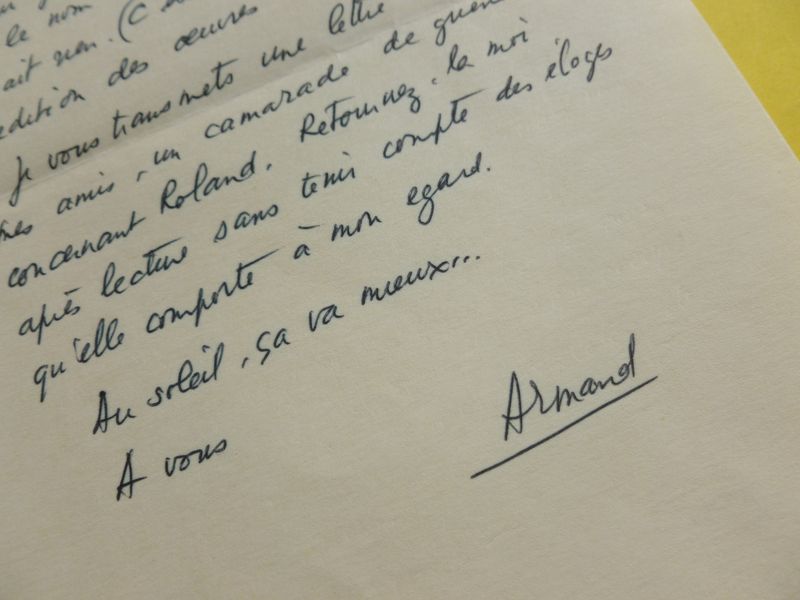 le nom
ait rien. (C
edition des œuvres
Je vous transmets une lettre
mes amis, un camarade de guerre
concernant Roland. Retournez-la moi
après lecture sans tenir compte des éloges
qu'elle comporte à mon egard.
Au soleil, ça va mieux...
A vous
Armand